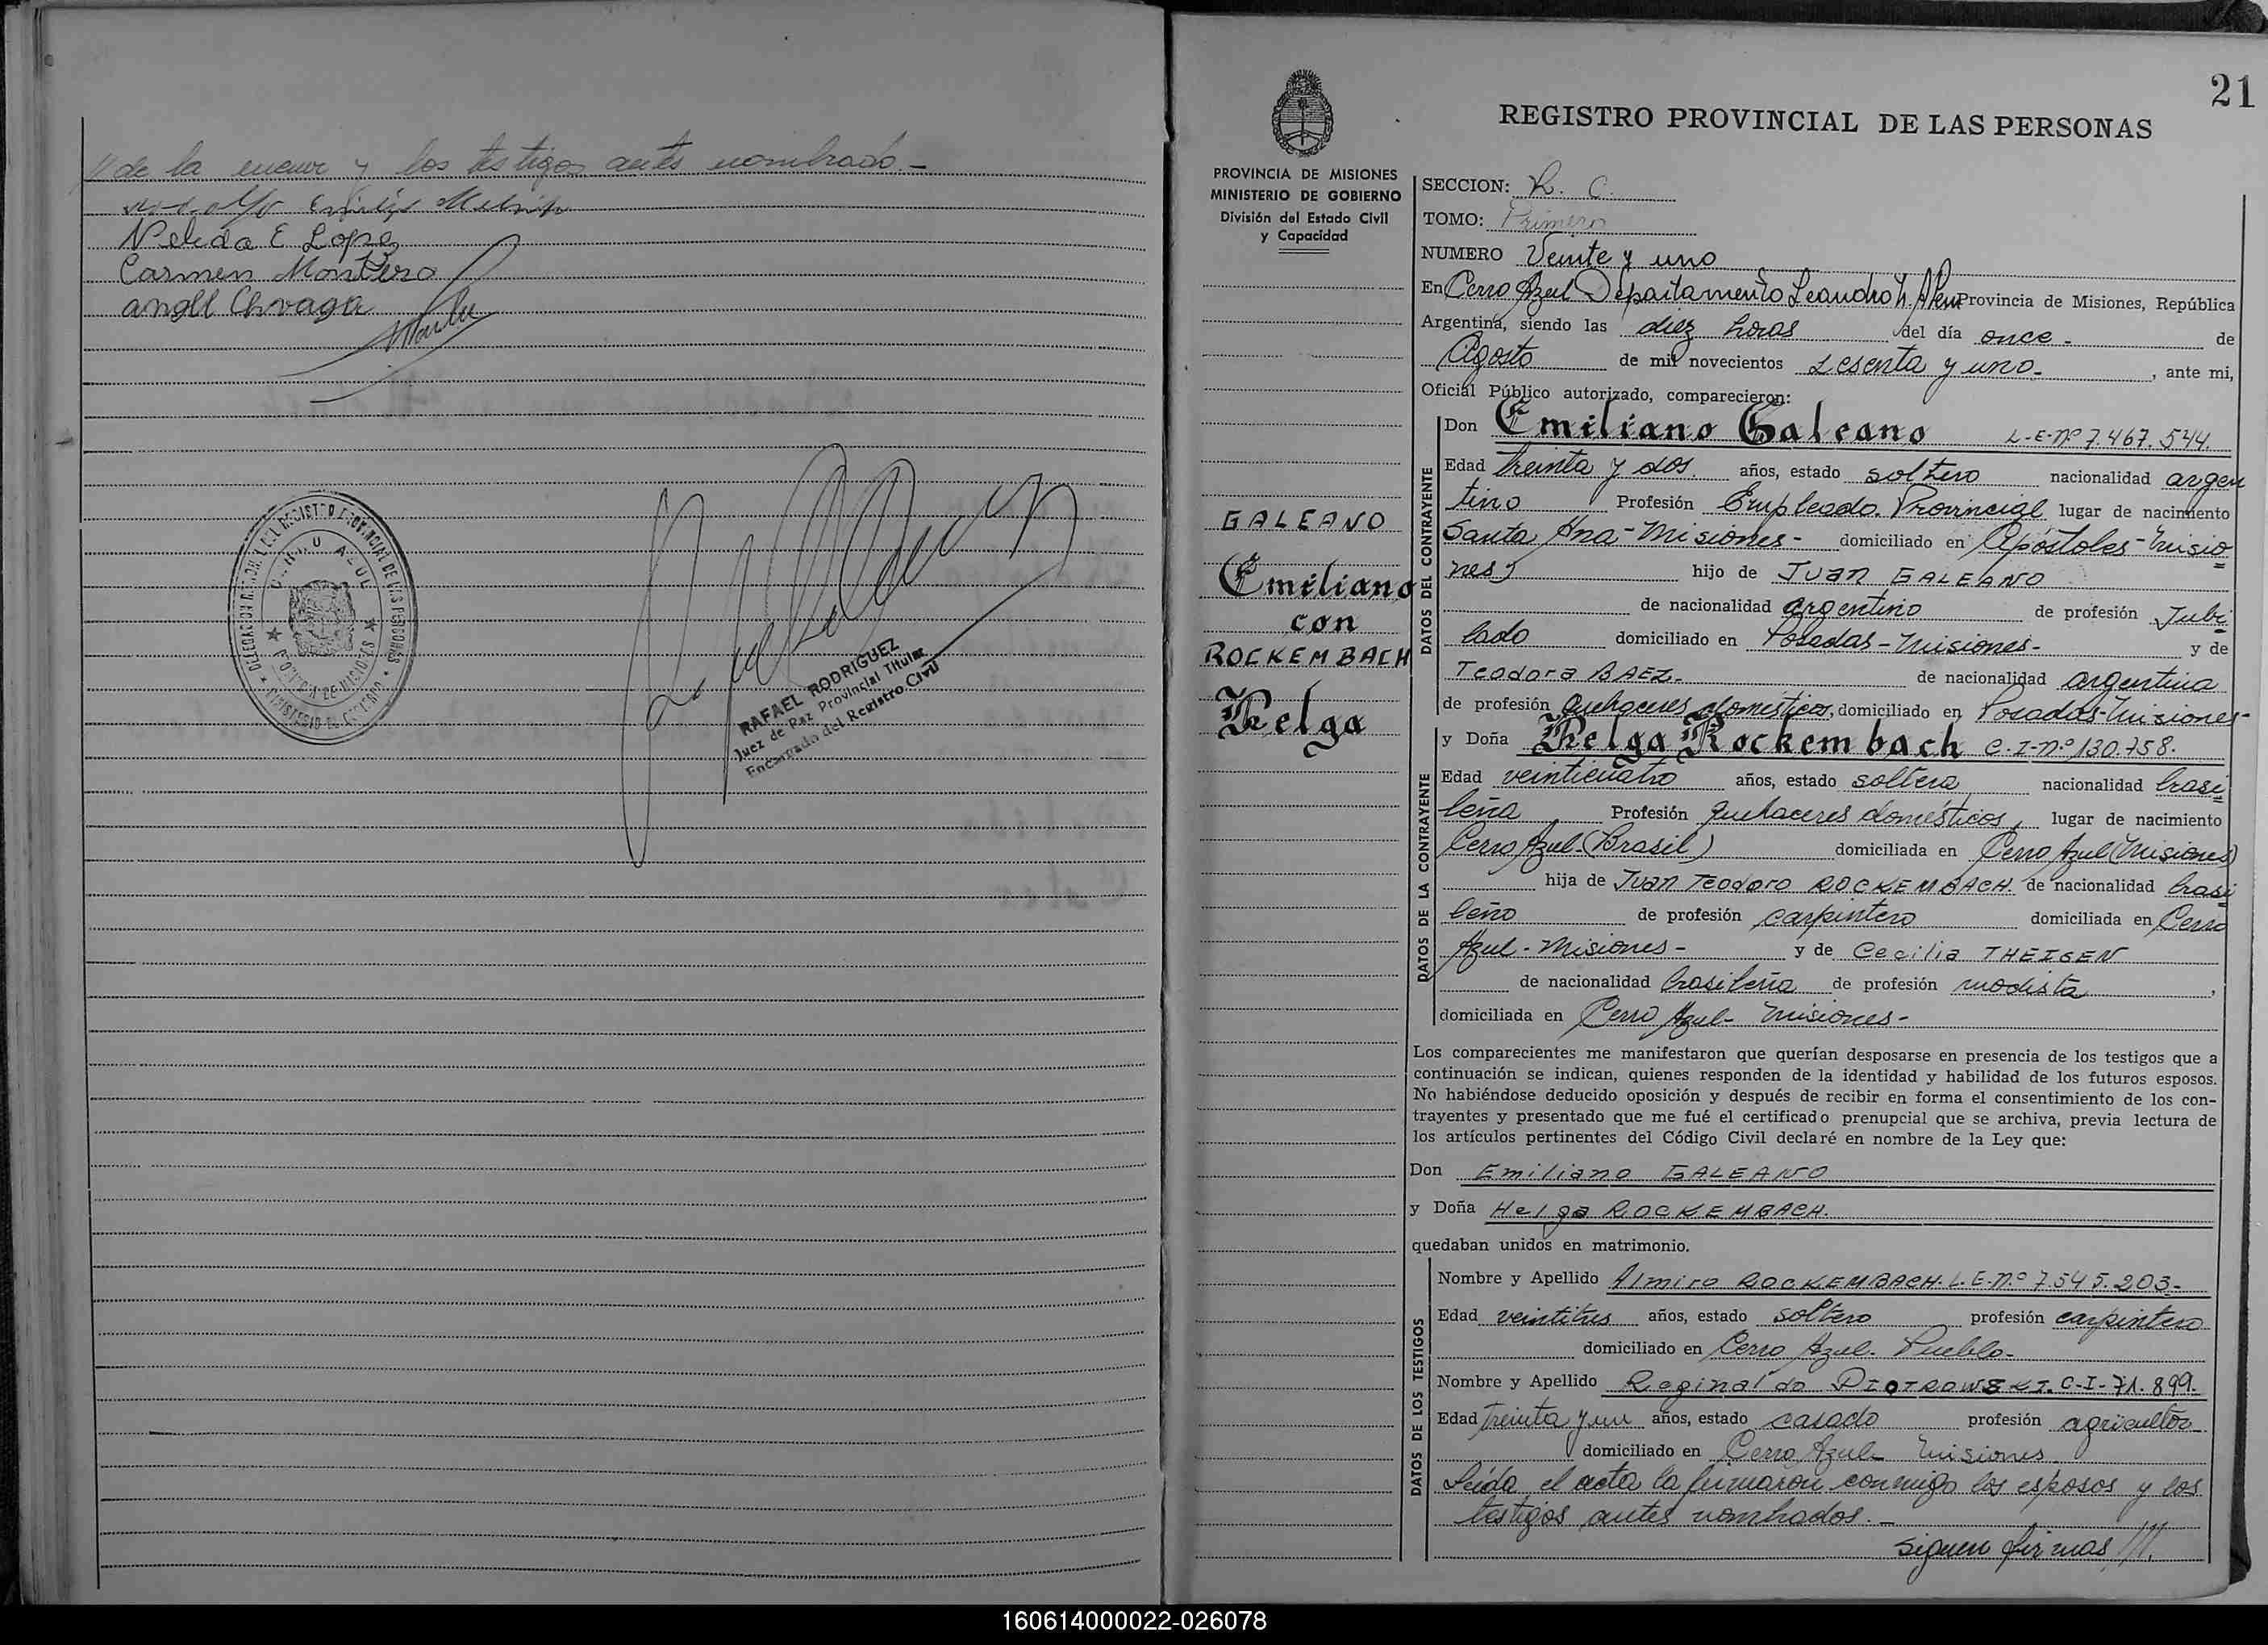 // de la menor y los testigos antes nombrado.-
Nelida E Lopez
Carmen Montero
angel Chvaga
DELEGACION DEL REGISTRO PROVINCIAL DE LAS PERSONAS
CERRO AZUL
MINISTERIO DE GOBIERNO
RAFAEL RODRIGUEZ
Juez de Paz Provincial Titular
Encargado del Registro Civil
21
REGISTRO PROVINCIAL DE LAS PERSONAS
PROVINCIA DE MISIONES
MINISTERIO DE GOBIERNO
División del Estado Civil
y Capacidad
GALEANO
Emiliano
con
ROCKEMBACH
Helga
SECCION: R. C.
TOMO: Primero
NUMERO Veinte y uno
En Cerro Azul Departamento Leandro N. Alem Provincia de Misiones, República
Argentina, siendo las diez horas del día once - de
Agosto de mil novecientos sesenta y uno-, ante mi,
Oficial Público autorizado, comparecieron:
DATOS DEL CONTRAYENTE
Don Emiliano Galeano L-E-Nº 7.467.544.
Edad treinta y dos. años, estado soltero nacionalidad argen
tino Profesión Empleado Provincial lugar de nacimiento
Santa Ana-Misiones- domiciliado en Apóstoles-Misio
nes, hijo de Juan GALEANO
de nacionalidad argentino de profesión Jubi
lado domiciliado en Posadas-Misiones- y de
Teodora BAEZ- de nacionalidad argentina
de profesión Quehaceres domésticos, domiciliado en Posadas-Misiones-
DATOS DE LA CONTRAYENTE
y Doña Helga Rockembach C.I-nº 130.758.
Edad veinticuatro años, estado soltera nacionalidad brasi
leña Profesión quehaceres domésticos, lugar de nacimiento
Cerro Azul-(Brasil) domiciliada en Cerro Azul (Misiones)
hija de Juan Teodoro ROCKEMBACH de nacionalidad brasi
leño de profesión carpintero domiciliada en Cerro
Azul-Misiones- y de Cecilia THEISEN
de nacionalidad brasileña de profesión modista,
domiciliada en Cerro Azul- Misiones-
Los comparecientes me manifestaron que querían desposarse en presencia de los testigos que a
continuación se indican, quienes responden de la identidad y habilidad de los futuros esposos.
No habiéndose deducido oposición y después de recibir en forma el consentimiento de los con-
trayentes y presentado que me fué el certificado prenupcial que se archiva, previa lectura de
los artículos pertinentes del Código Civil declaré en nombre de la Ley que:
Don Emiliano GALEANO
y Doña Helga ROCKEMBACH.
quedaban unidos en matrimonio.
DATOS DE LOS TESTIGOS
Nombre y Apellido Almiro ROCKEMBACH. L.E-n.º 7.545.203-
Edad veintitres años, estado soltero profesión carpintero
domiciliado en Cerro Azul- Pueblo-
Nombre y Apellido Reginaldo PIOTROWSKI. C-I-71.899.
Edad treinta y un años, estado casado profesión agricultor
domiciliado en Cerro Azul- Misiones
Leída el acta la firmaron conmigo los esposos y los
testigos antes nombrados.-
siguen firmas ///.
160614000022-026078